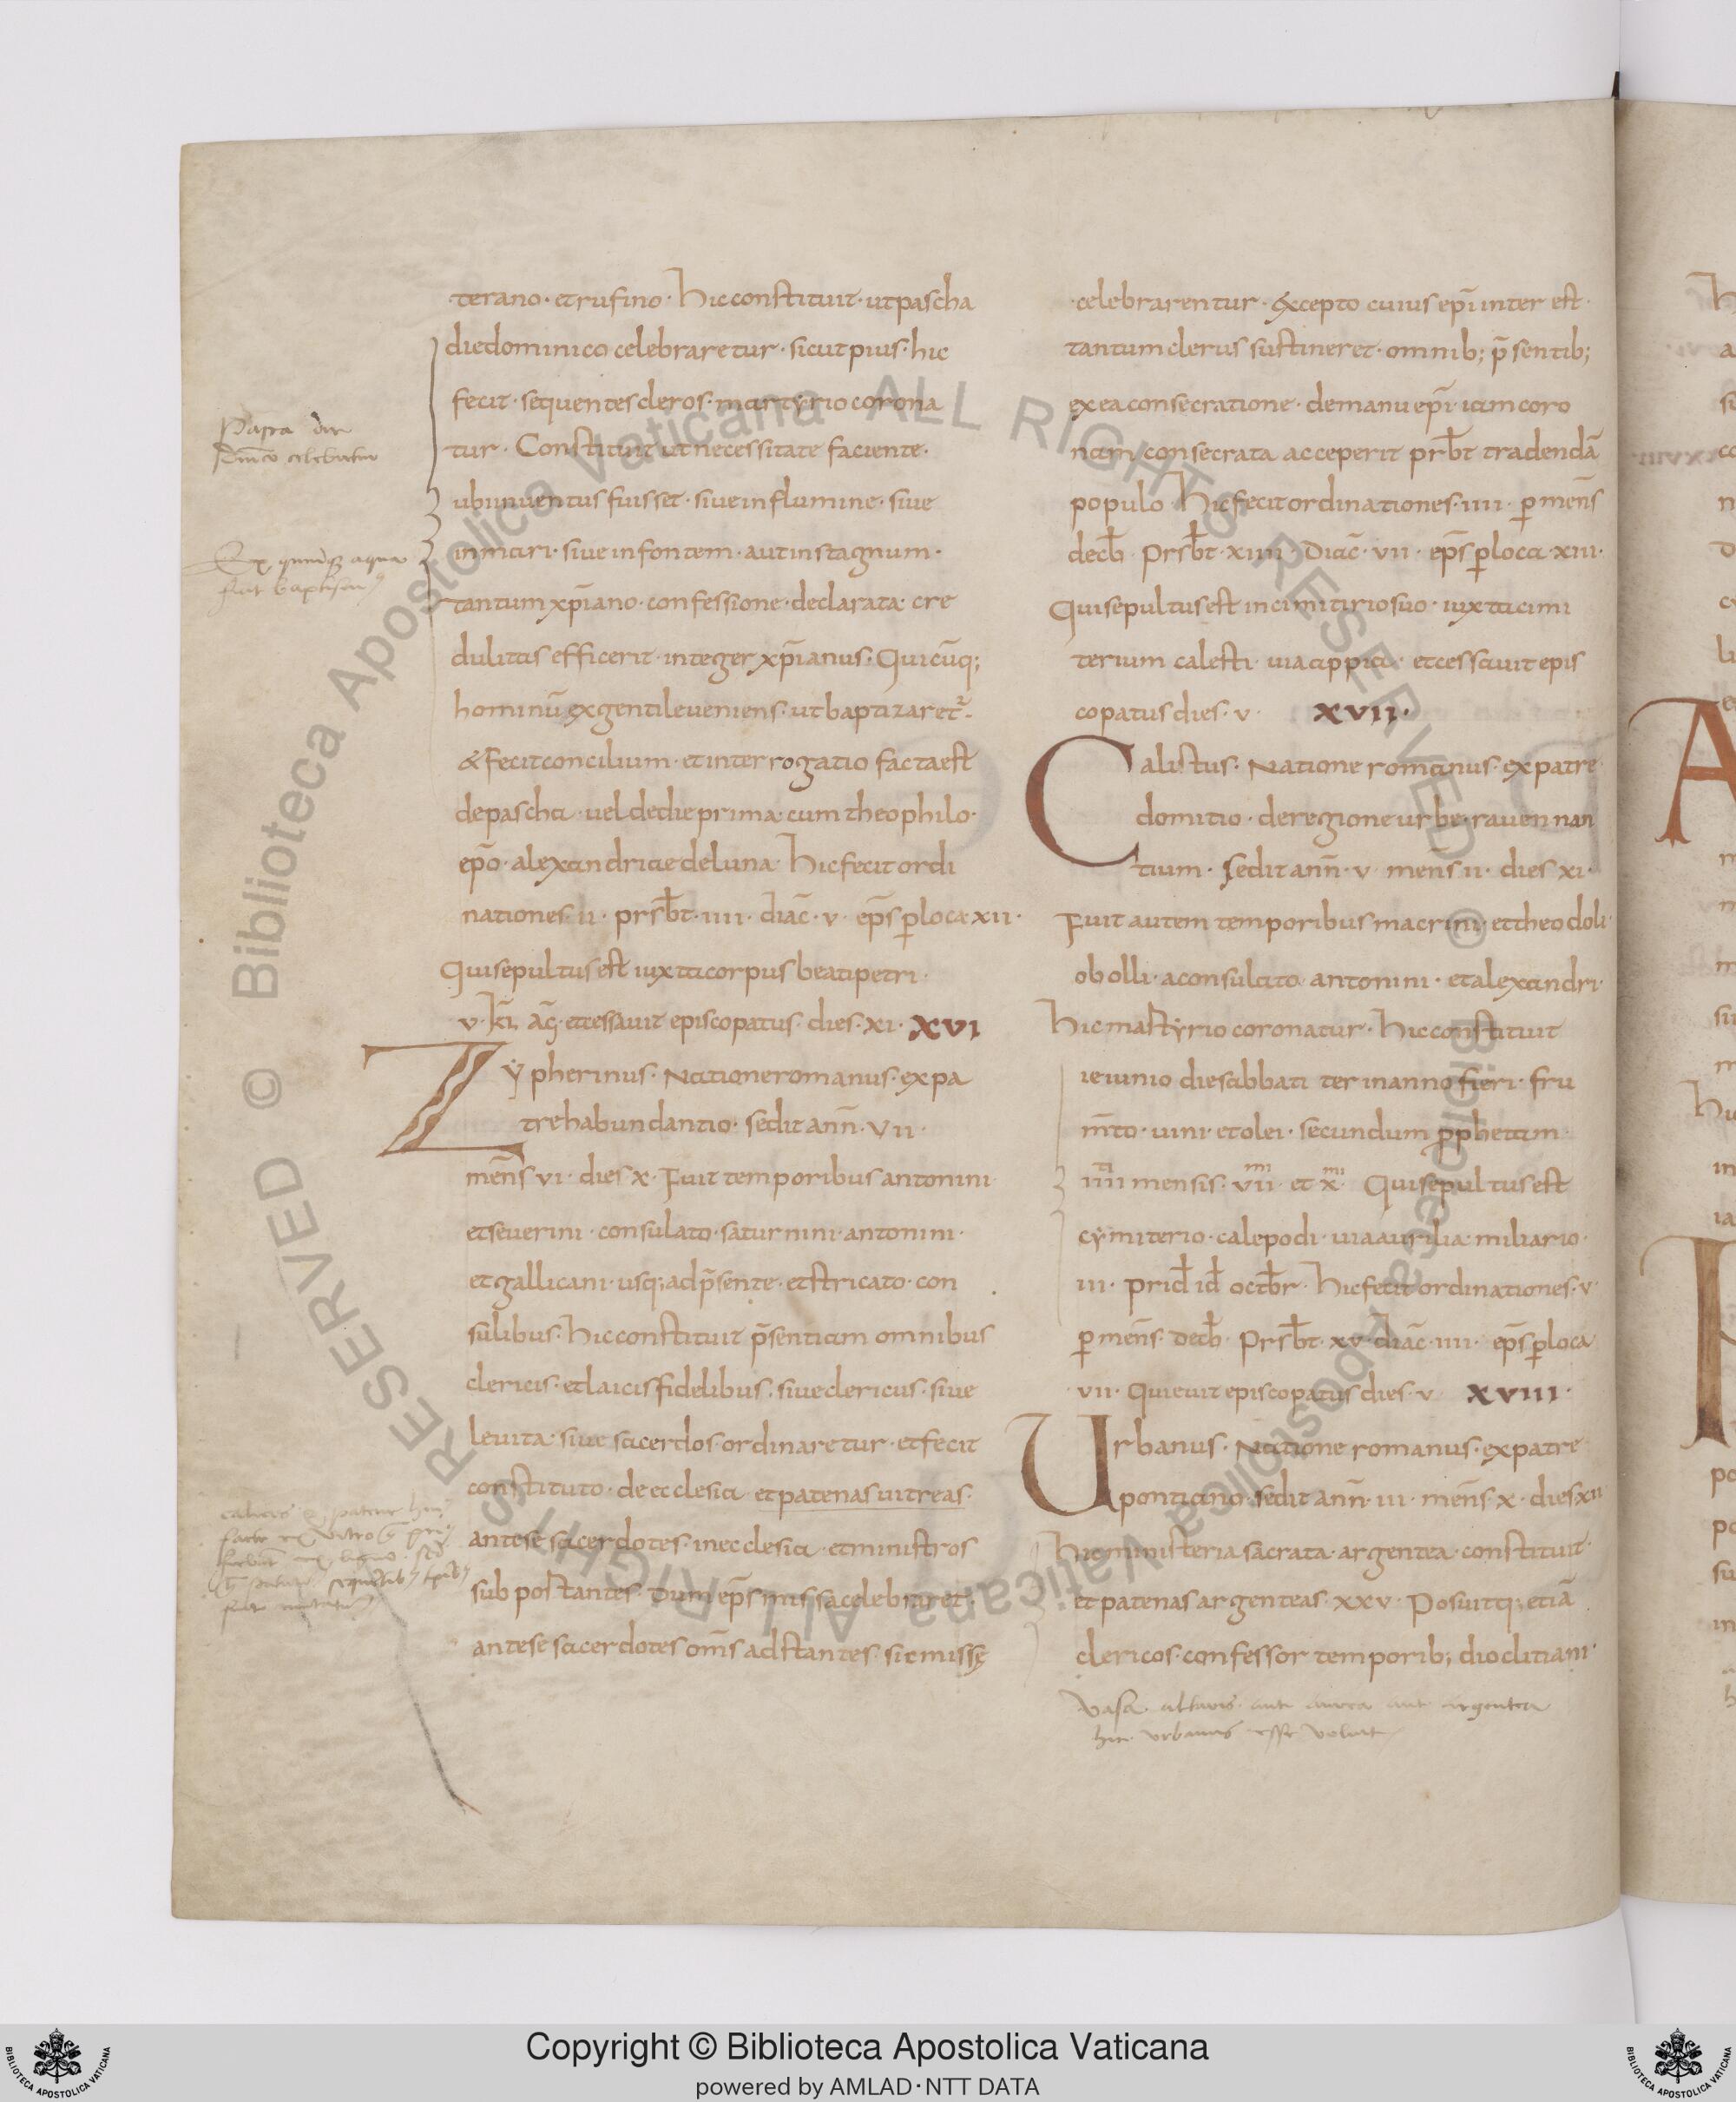 terano· et rufino· hic constituit· ut pascha
die dominico celebraretur· sicut pius· hic
fecit· sequentes cleros· martyrio corona
tur· Constituit ut necessitate faciente·
ubi inventus fuisset· sive in flumine· sive
in mari· sive in fontem· aut in stagnum·
tantum xp̄iano· confessione· declarata· cre
dulitas efficerit· integer xp̄ianus· Quicūq;
hominū ex gentile veniens· ut baptizaret᷑·
& fecit concilium· et interrogatio facta est
de pascha· vel de die prima· cum theophilo·
ep̄o· alexandriae de luna· hic fecit ordi
nationes· ii· prsb̄t· iiii· diac̄· v· ep̄s p̱ loca xii·
Qui sepultus est iuxta corpus beati petri·
v· kl̄· aḡ· et cessavit episcopatus· dies· xi· XVI
Zypherinus· Natione romanus· ex pa
tre habundantio· sedit ann̄· vii·
men̄s vi· dies x· Fuit temporibus antonini
et severini· consulato· saturnini· antonini·
et gallicani· usq; ad p̄sente· et stricato· con
sulibus· hic constituit p̄sentiam omnibus
clericis· et laicis fidelibus· sive clericus· sive
levita· sive sacerdos· ordinaretur· et fecit
constituto· de ecclesia· et patenas vitreas·
ante se sacerdotes· in ecclesia· et ministros
subpostantes· Dum ep̄s missa celebraret·
ante se sacerdotes om̄s adstantes· sic missę
celebrarentur· excepto cuius ep̄i inter est·
tantum clerus sustineret· omnib; p̄sentib;
ex ea consecratione· de manu ep̄i· iam coro
nam consecrata acceperit prsb̄t tradendā
populo· hic fecit ordinationes· iiii· p̱ men̄s
decb̄· prsb̄t· xiiii· Diac̄· vii· ep̄s p̱ loca· xiii·
Qui sepultus est in cimitirio suo· iuxta cimi
terium calesti· via appia· et cessavit epis
copatus dies· v· XVII·
Calistus· Natione romanus· ex patre·
domitio· de regione urbe· ravennan
tium· Sedit ann̄· v· mens ii· dies xi·
Fuit autem temporibus macrini· et theodoli
obolli· a consulato· antonini· et alexandri·
hic mastyrio coronatur· hic constituit
ieiunio die sabbati ter in anno fieri· fru
m̄to· vini· et olei· secundum pphetam·
iiii mensis· vii· et x· Qui sepultus est
cymiterio· calepodi· via aurilia· miliario·
iii· prid̄ id̄ octb̄r· hic fecit ordinationes· v·
p̱ men̄s· decb̄· prsb̄t· xv· diac̄· iiii· ep̄s p̱ loca
vii· Quievit episcopatus dies· v· XVIII·
Urbanus· Natione romanus· ex patre
pontiano· sedit ann̄· iii· men̄s· x· dies xii
hic ministeria sacrata· argentea· constituit·
et patenas argenteas· xxv· Posuitq; etiā
clericos· confessor temporib; dioclitiani·
Vasa altaris aut aurea aut argentea
hic urbanus esse voluit
Pasca die
Dn̄ico celebratur
Copyright © Biblioteca Apostolica Vaticana
powered by AMLAD·NTT DATA
BIBLIOTECA APOSTOLICA VATICANA
BIBLIOTECA APOSTOLICA VATICANA
© Biblioteca Apostolica Vaticana ALL RIGHTS RESERVED © Biblioteca Apostolica Vaticana ALL RIGHTS RESERVED